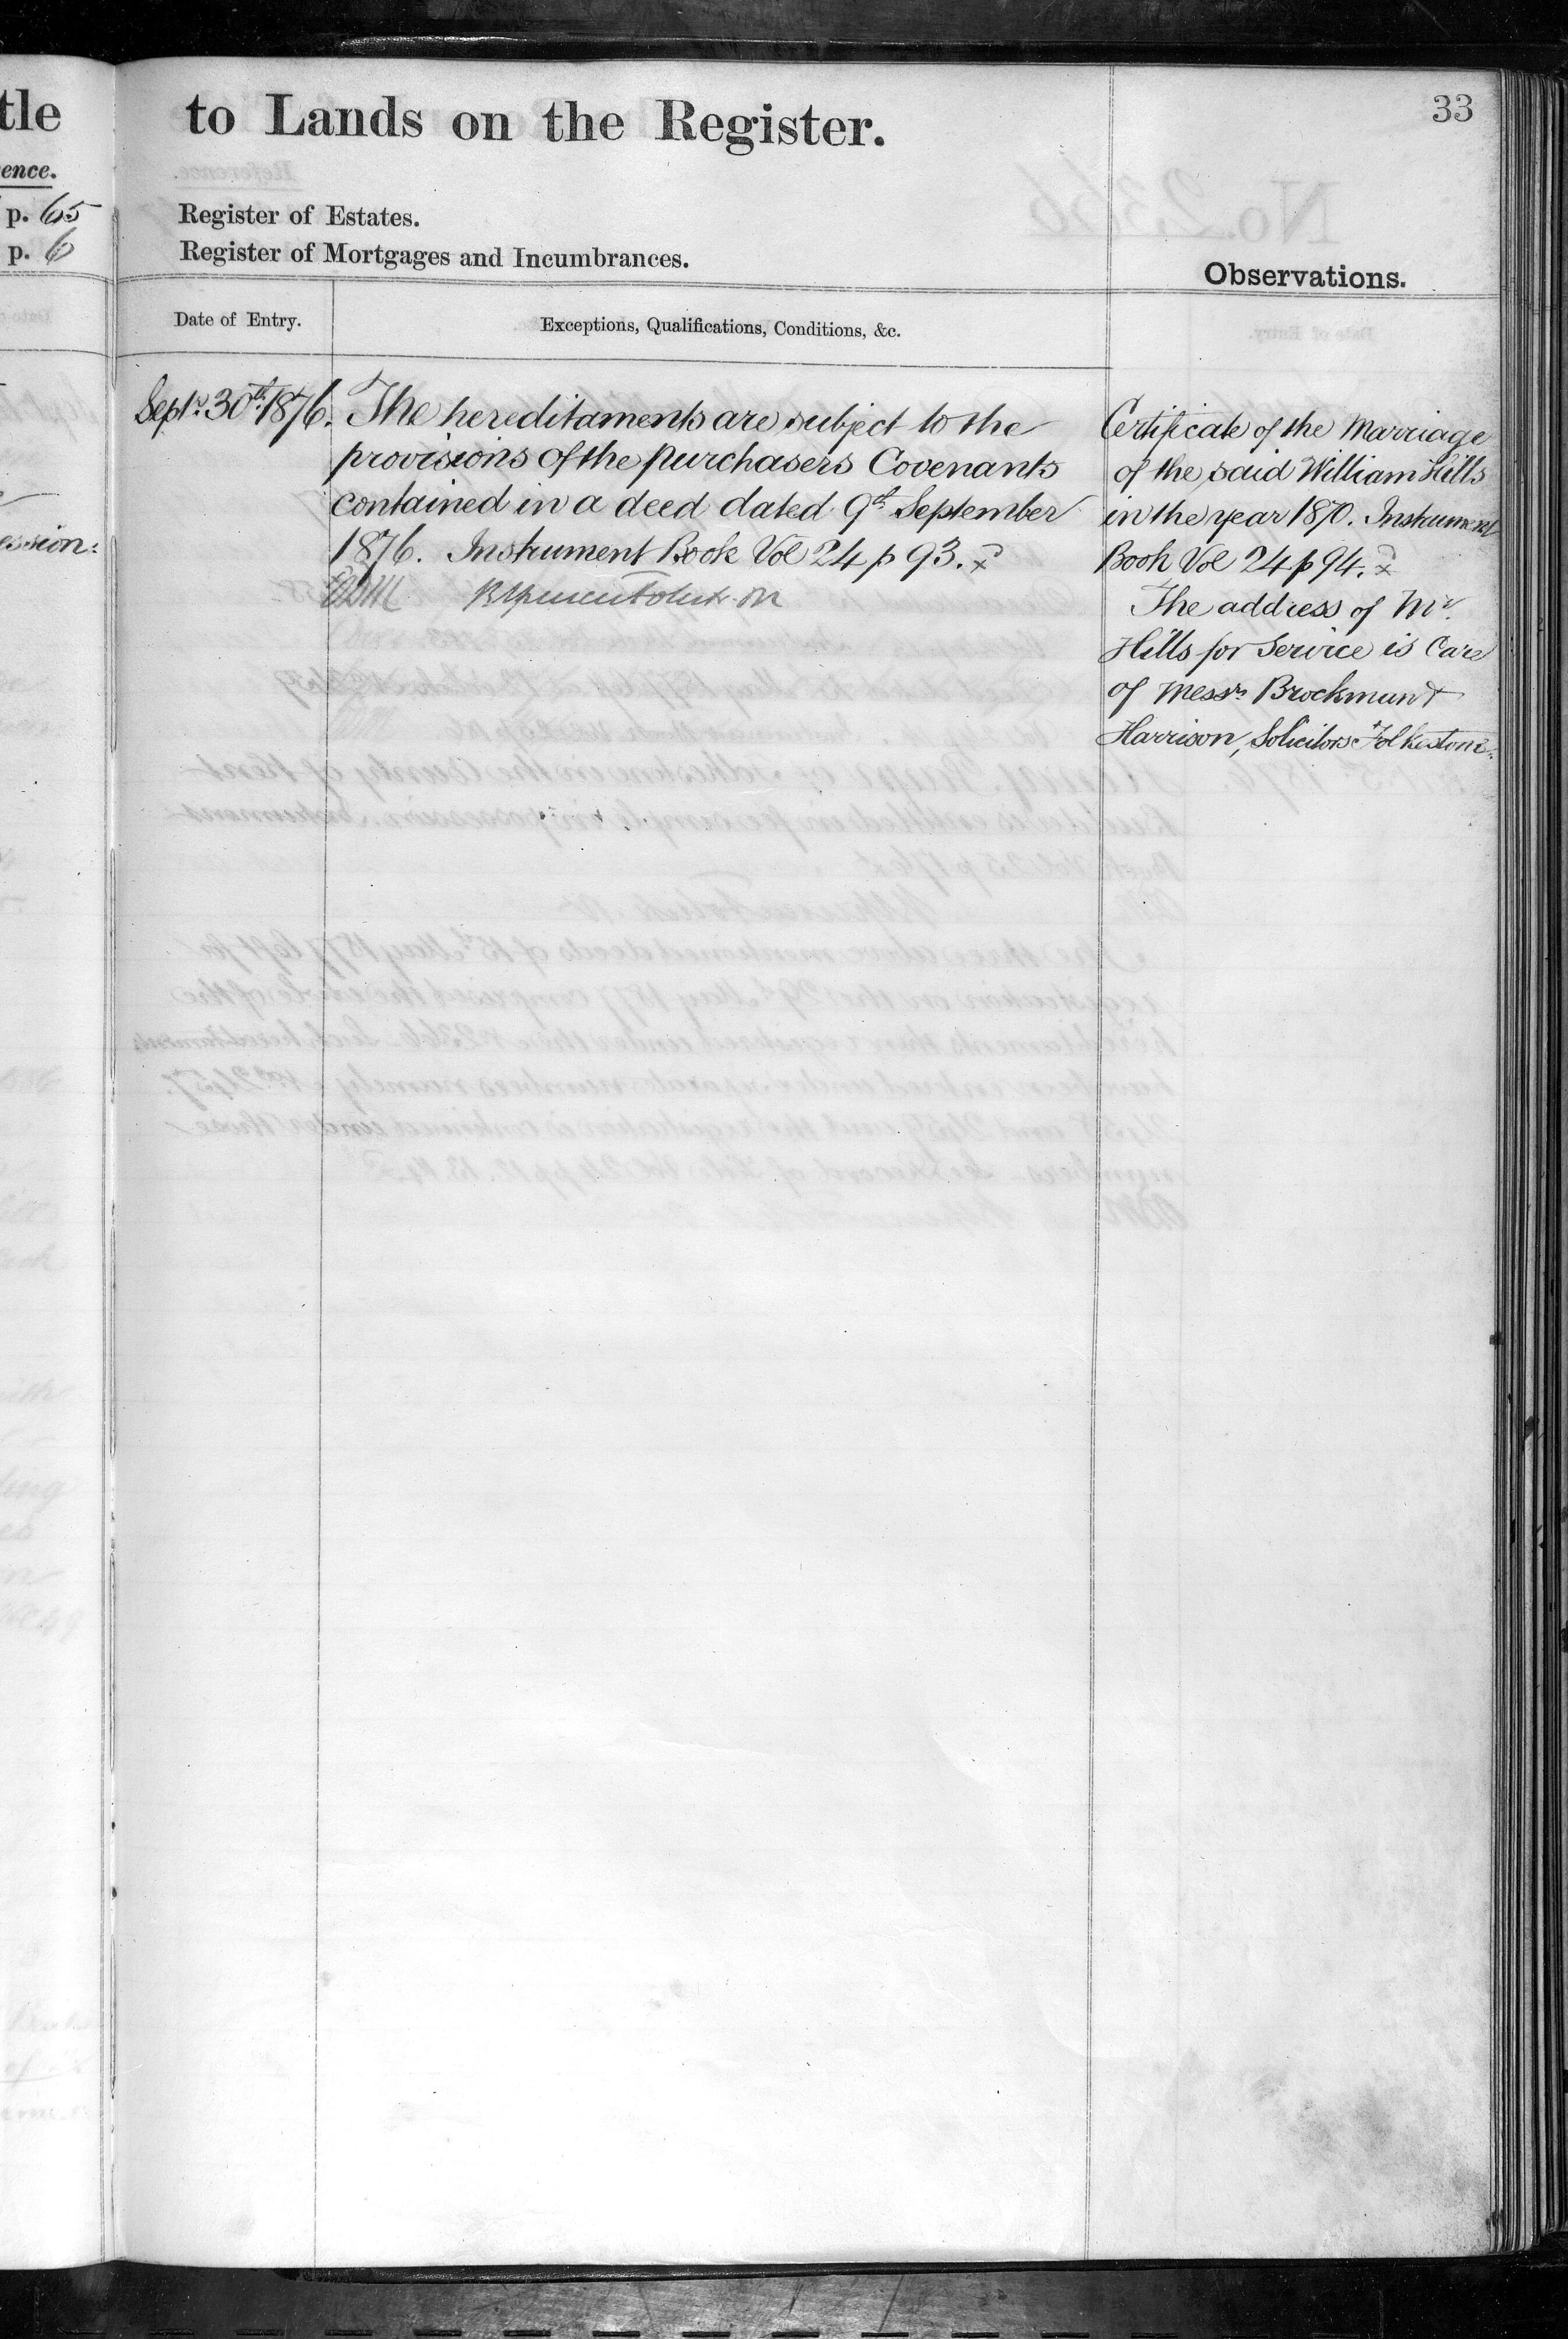 tle
ence.
p. 65
p. 6
ession:
to Lands on the Register.
33
Register of Estates.
Register of Mortgages and Incumbrances.
Observations.
Date of Entry.
Exceptions, Qualifications, Conditions, &c.
Septr. 30th 1876.
The hereditaments are subject to the
provisions of the purchasers Covenants
contained in a deed dated 9th September
1876. Instrument Book Vol 24 p 93. x
Certificate of the Marriage
of the said William Hills
in the year 1870. Instrument
Book Vol 24 p 94. x
The address of Mr.
Hills for Service is Care
of Messrs Brockman &
Harrison, Solicitors Folkestone.